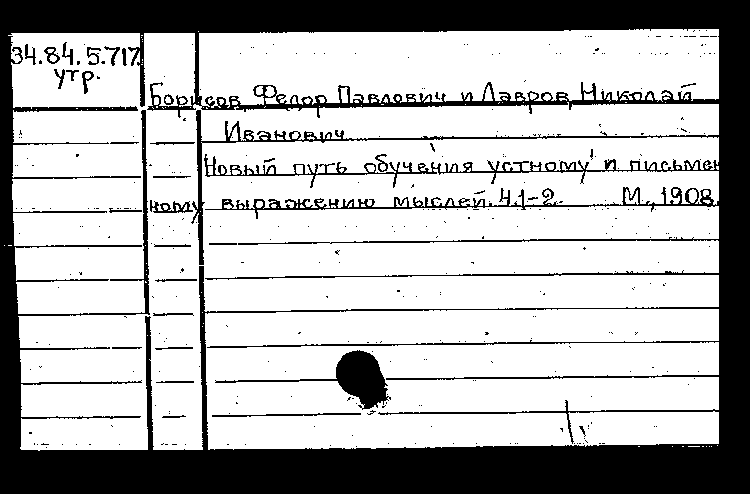 34.84.5.717
утр.
Борисов Федор Павлович и Лавров, Николай
Иванович
Новый путь обучения устному и письмен
ному выражению мыслей. Ч.1-2. М., 1908.